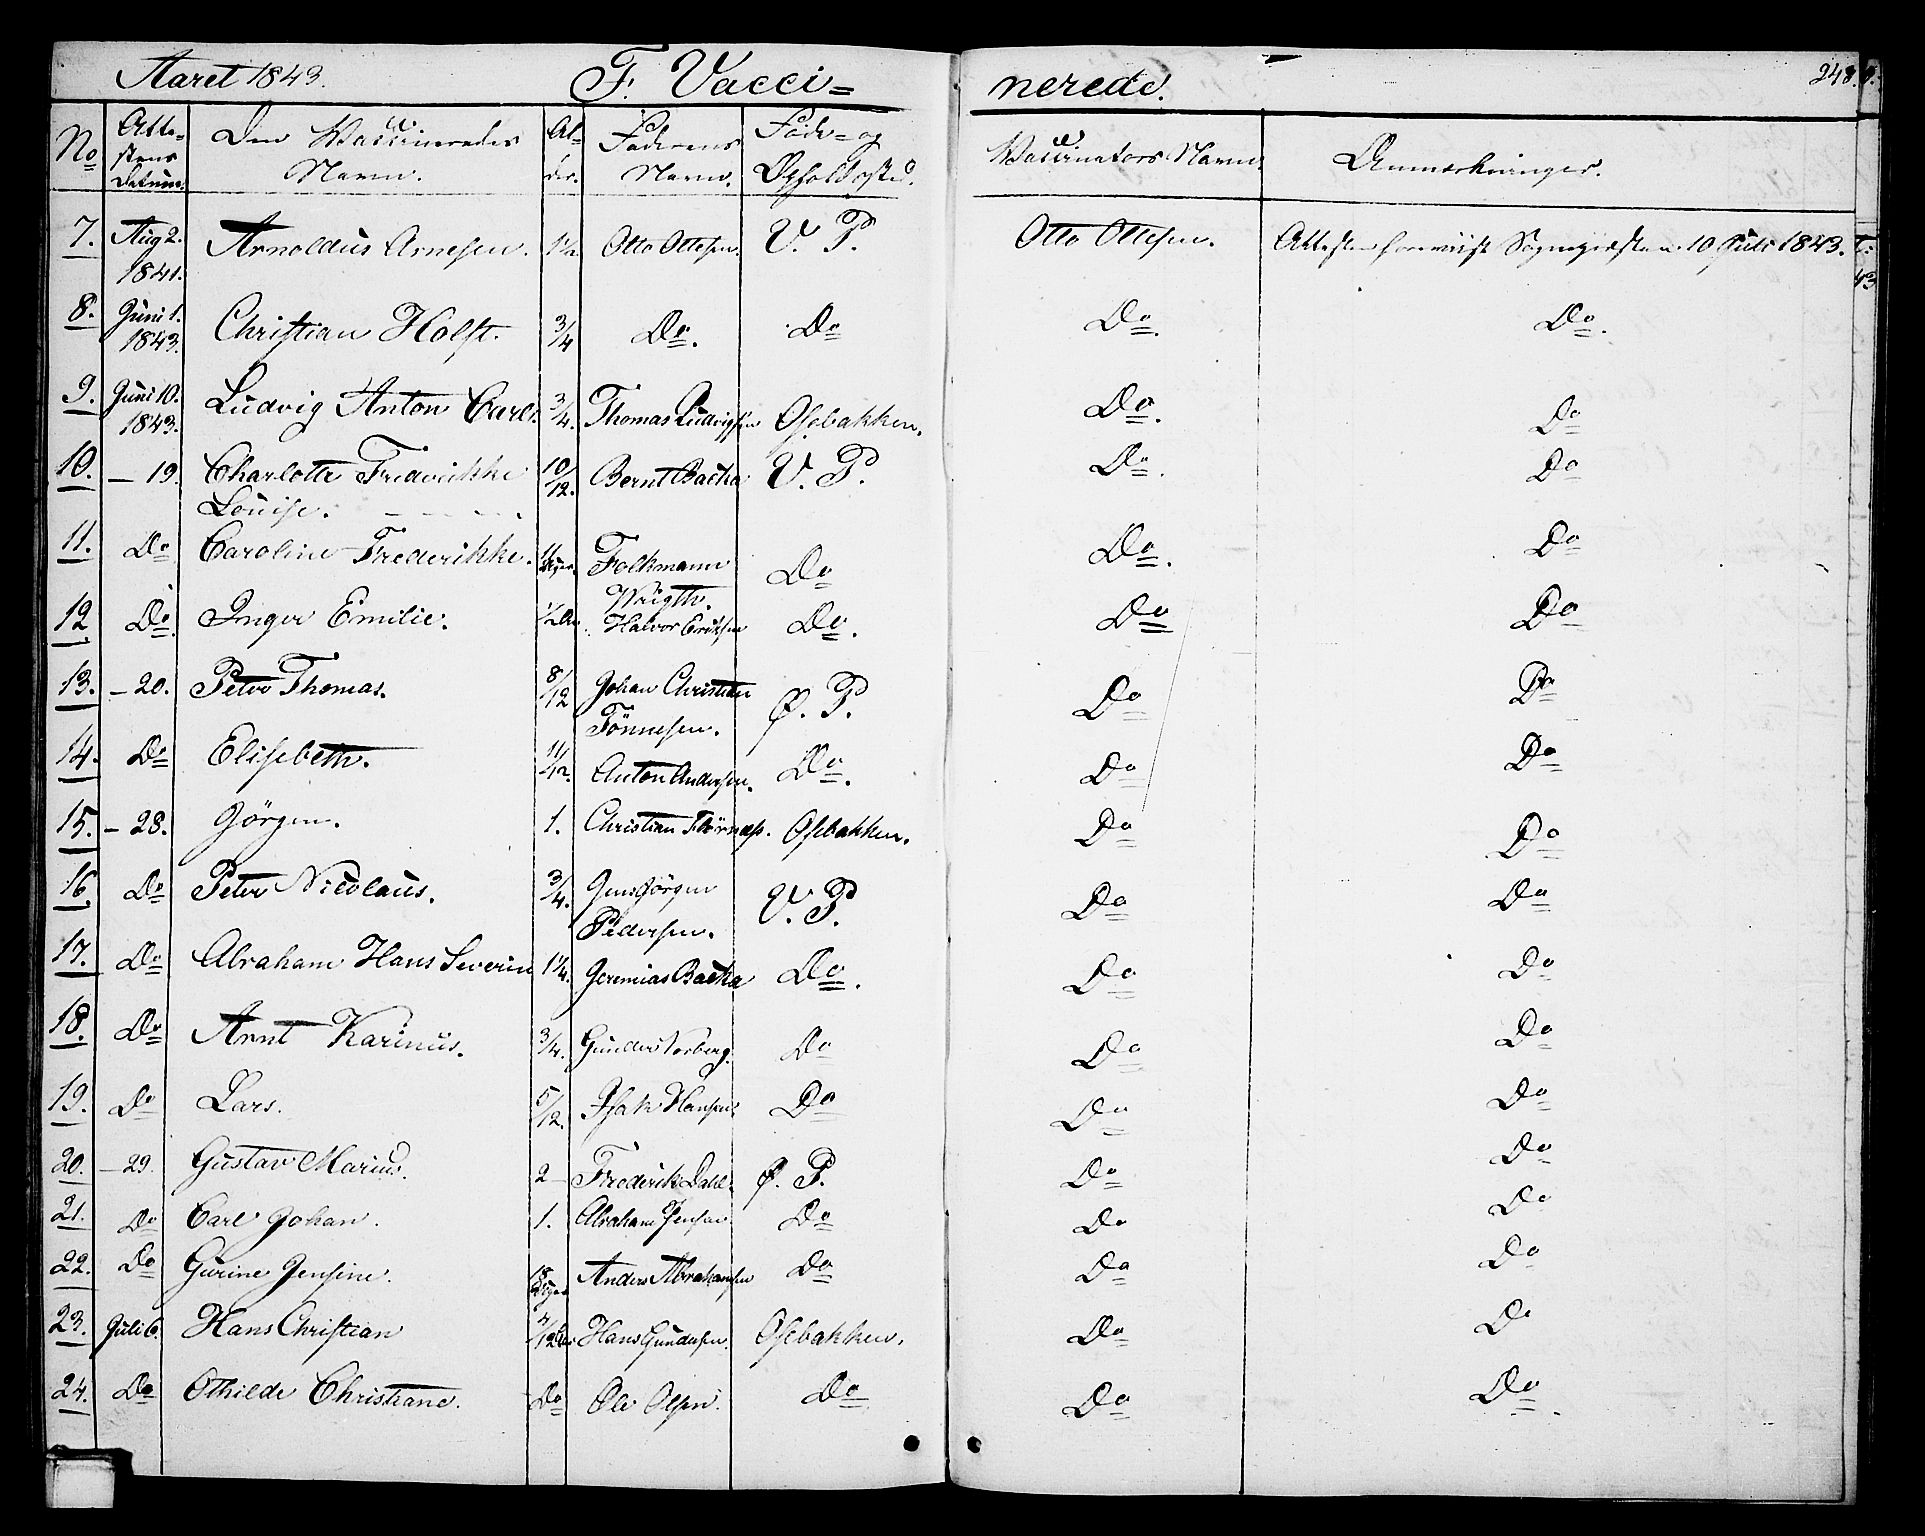 Aaret 1843. F. Vacci= nerede. 248.
No Atte= stens Datum. Den Vaccineredes Navn. Al- der. Faderens Navn. Føde= og Opholdssted. Vaccinators Navn. Anmærkninger.
7. Aug 2. 1841. Arnoldus Arnesen. 1½ Otto Ottesen. V. P. Otto Ottesen. Attesten foreviist Sognepræsten 10 Juli 1843.
8. Juni 1. 1843. Christian Holst. 3/4 Do. Do Do. Do.
9. Juni 10. 1843. Ludvig Anton Carl. 3/4. Thomas Ludvigsen Osebakken. Do. Do
10. — 19. Charlotte Frederikke Louise. 10/12. Bernt Backa V. P. Do. Do
11. Do Caroline Frederikke. Folkmann Wrigth. Do Do. Do
12 Do. Inger Emilie. ½ Do Halvor Eriksen Do. Do Do
13. — 20. Peter Thomas. 8/12 Johan Christian Tönnesen. Ø. P. Do Do
14. Do Elisebeth. 11/12. Anton Andersen. Do. Do Do
15. — 28. Jörgen. 1. Christian Osebakken. Do Do
16. Do Peter Nicolaus. 3/4. Jens Jörgen Pedersen. V. P. Do Do
17. Do Abraham Hans Severin 1¼. Jeremias Backa Do. Do Do
18. Do Arnt Karinus. 3/4. Gunder Norberg. Do Do Do
19. Do Lars. 5/12. Isak Hansen Do Do Do
20. — 29. Gustav Marius. 2 — Frederik Dahl. Ø. P. Do Do
21. Do Carl Johan. 1. Abraham Jensen Do Do Do
22. Do Gurine Jensine. 18 Uger Anders Abrahamsen Do Do Do
23. Juli 6. Hans Christian Hans Gundersen. Osebakken. Do Do
24. Do Othilde Christiane. Do Ole Olsen. Do Do Do.